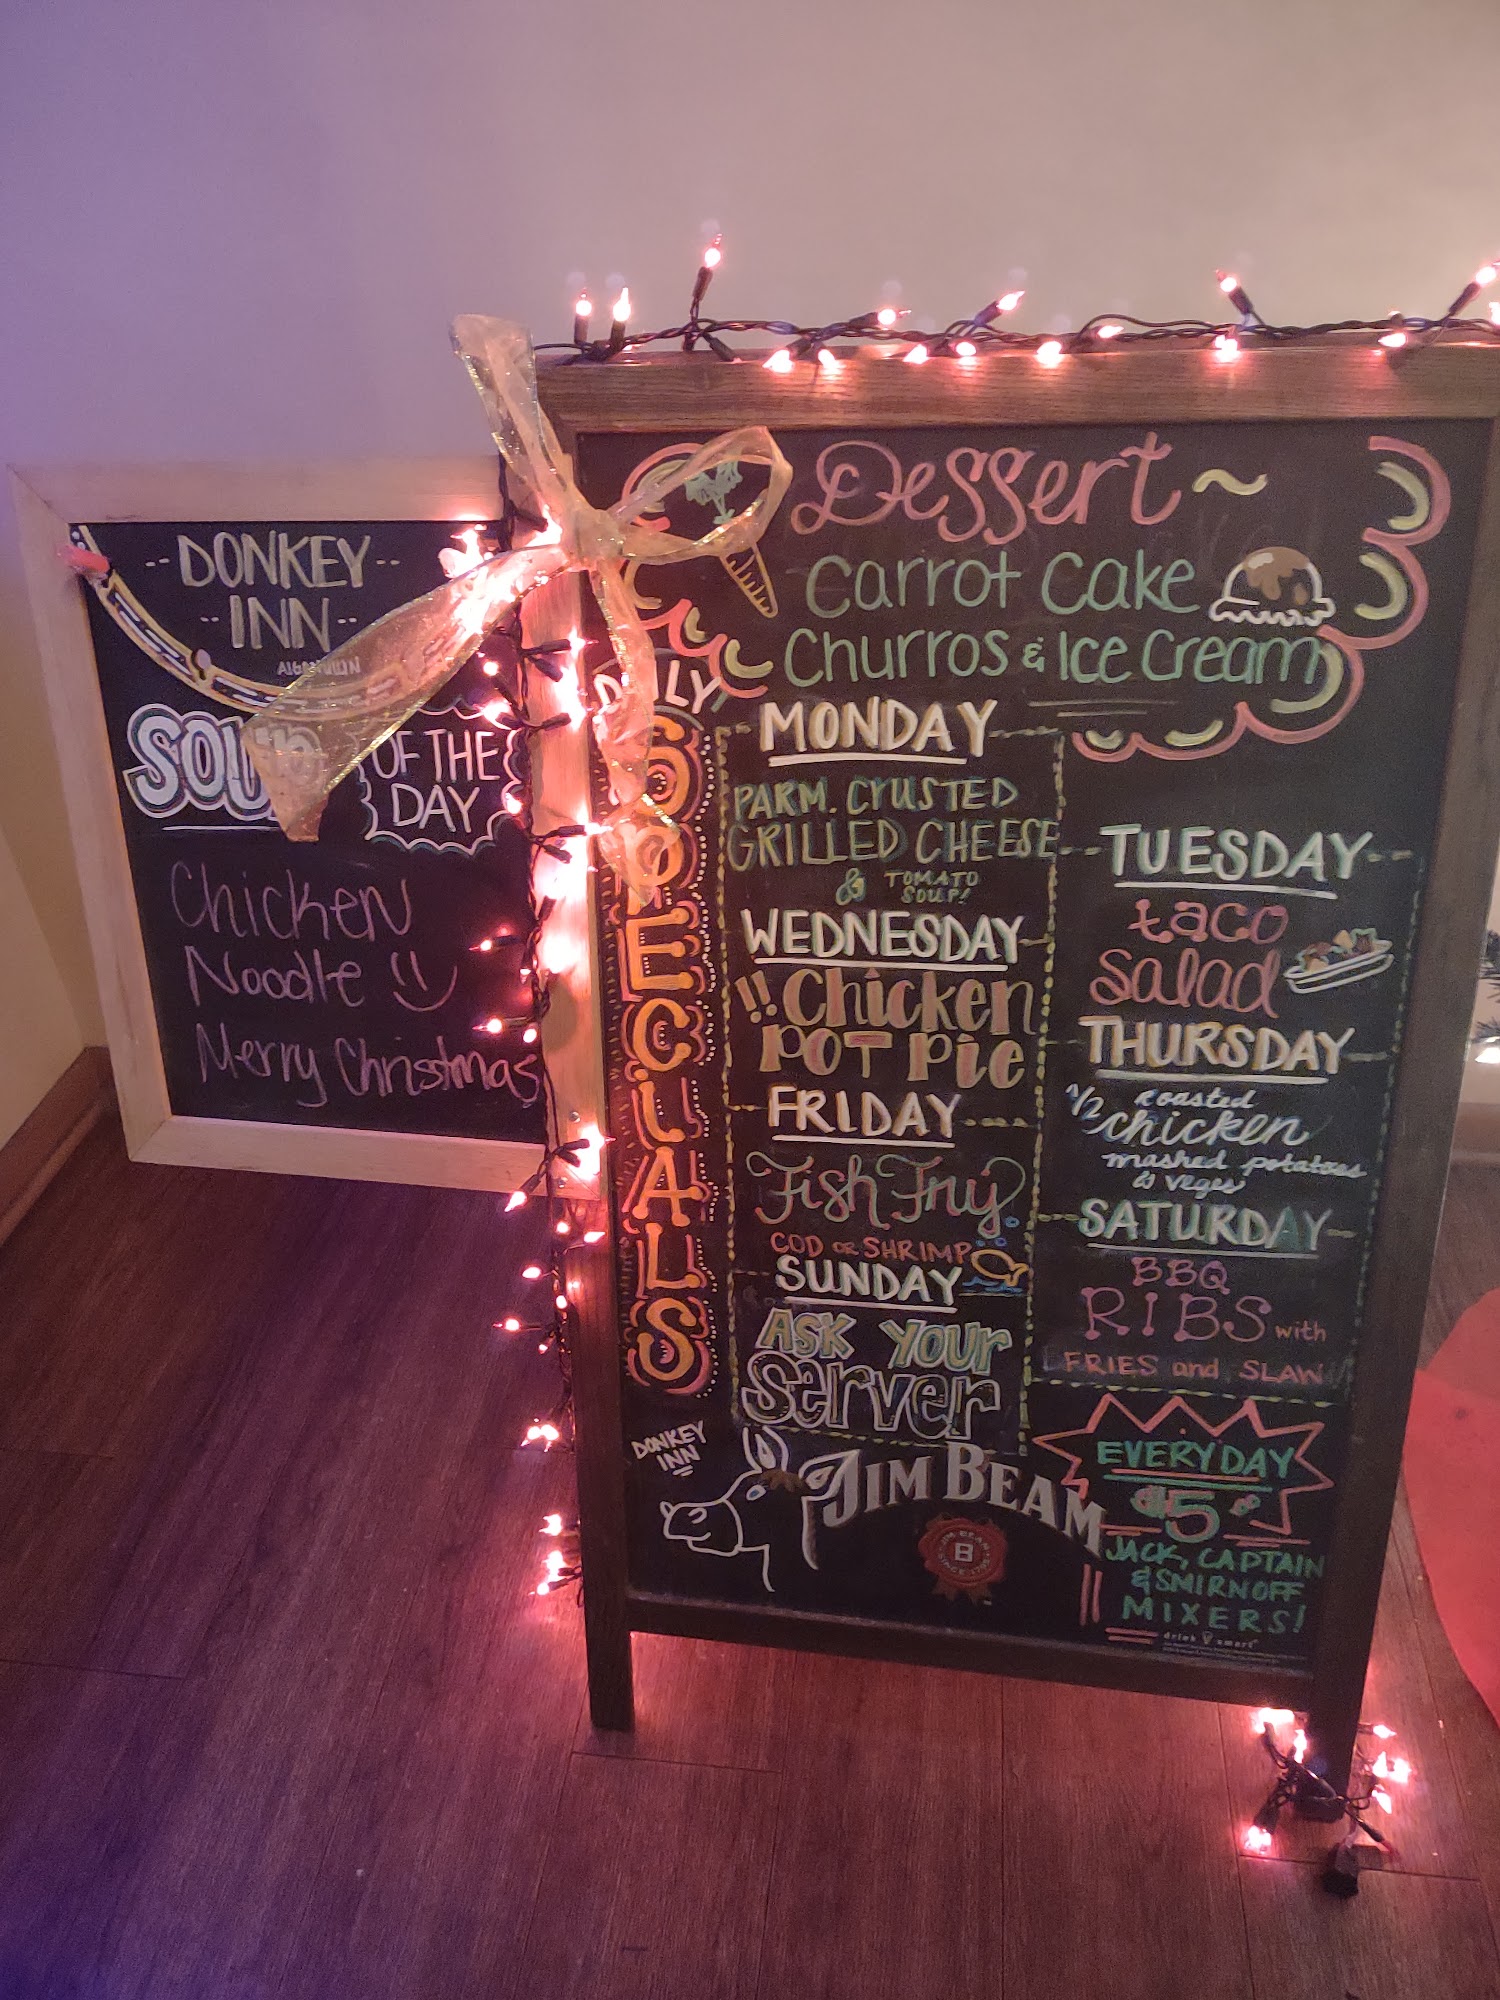 --DONKEY--
--INN--
ALGONQUIN
SOUP OF THE
DAY
Chicken
Noodle
Merry Christmas
Dessert ~
Carrot Cake
Churros & Ice Cream
DAILY
SPECIALS
MONDAY
PARM. CRUSTED
GRILLED CHEESE
& TOMATO
SOUP!
TUESDAY
taco
salad
WEDNESDAY
!! Chicken
POT Pie
THURSDAY
1/2 roasted
chicken
mashed potatoes
& veges
FRIDAY
Fish Fry
COD OR SHRIMP
SATURDAY
BBQ
RIBS with
FRIES and SLAW
SUNDAY
ASK YOUR
Server
DONKEY
INN
JIM BEAM
JIM BEAM
B
SINCE 1795
EVERYDAY
$5
JACK, CAPTAIN
& SMIRNOFF
MIXERS!
drink smart